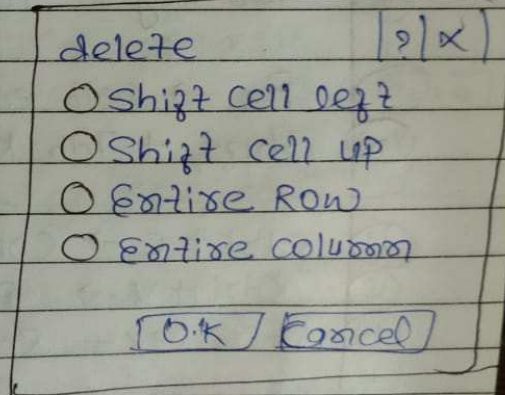 delete |?|x|
Shift cell left
Shift cell up
Entire Row
Entire column
O.K Cancel